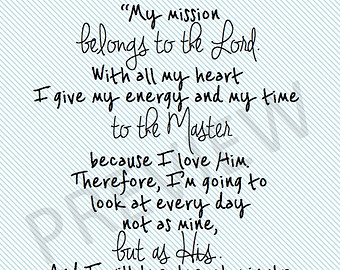 “My mission
belongs to the Lord.
With all my heart
I give my energy and my time
to the Master
because I love Him.
Therefore, I'm going to
look at every day
not as mine,
but as His.
PREVIEW